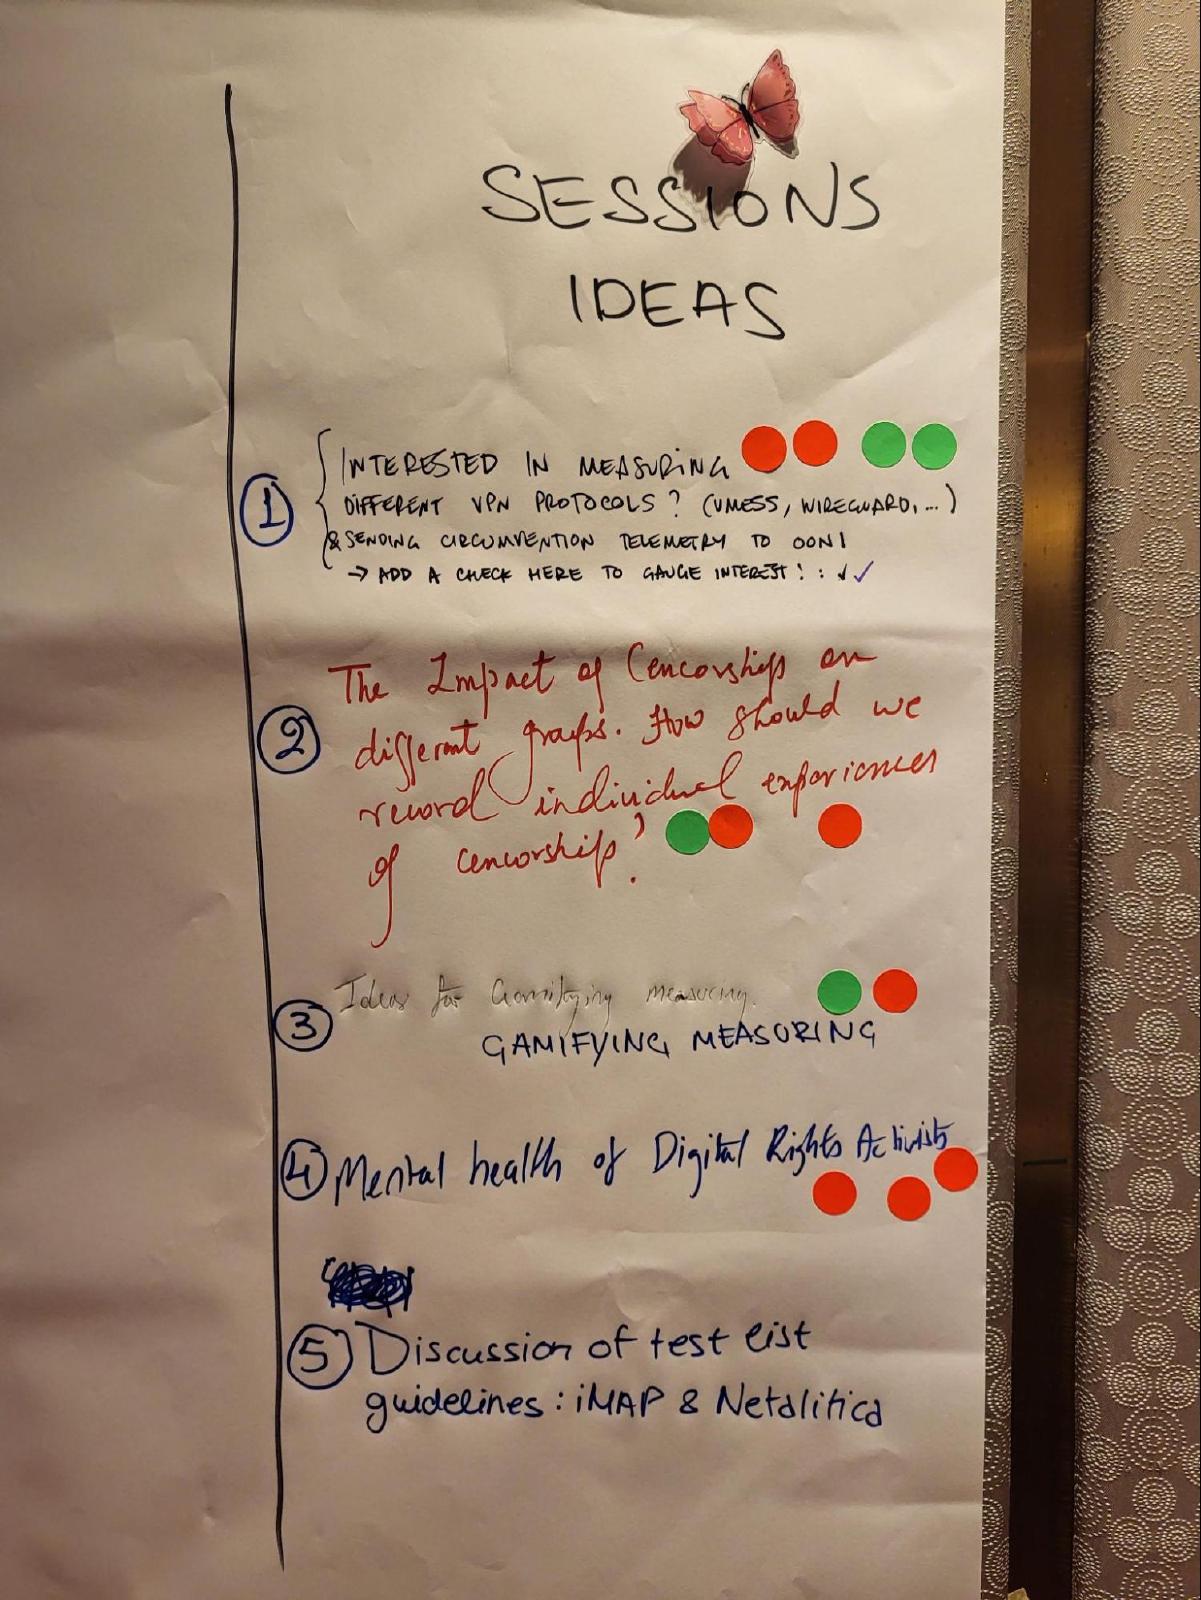 SESSIONS
IDEAS
1 INTERESTED IN MEASURING
DIFFERENT VPN PROTOCOLS? (VMESS, WIREGUARD, ...)
& SENDING CIRCUMVENTION TELEMETRY TO OONI
→ ADD A CHECK HERE TO GAUGE INTEREST! : ✓✓
2 The Impact of Cencorship on
different groups. How should we
record individual experiences
of cencorship?
3 Ideas for Gamifying measuring.
GAMIFYING MEASURING
4 Mental health of Digital Rights Activists
5 Discussion of test list
guidelines: iMAP & Netalitica